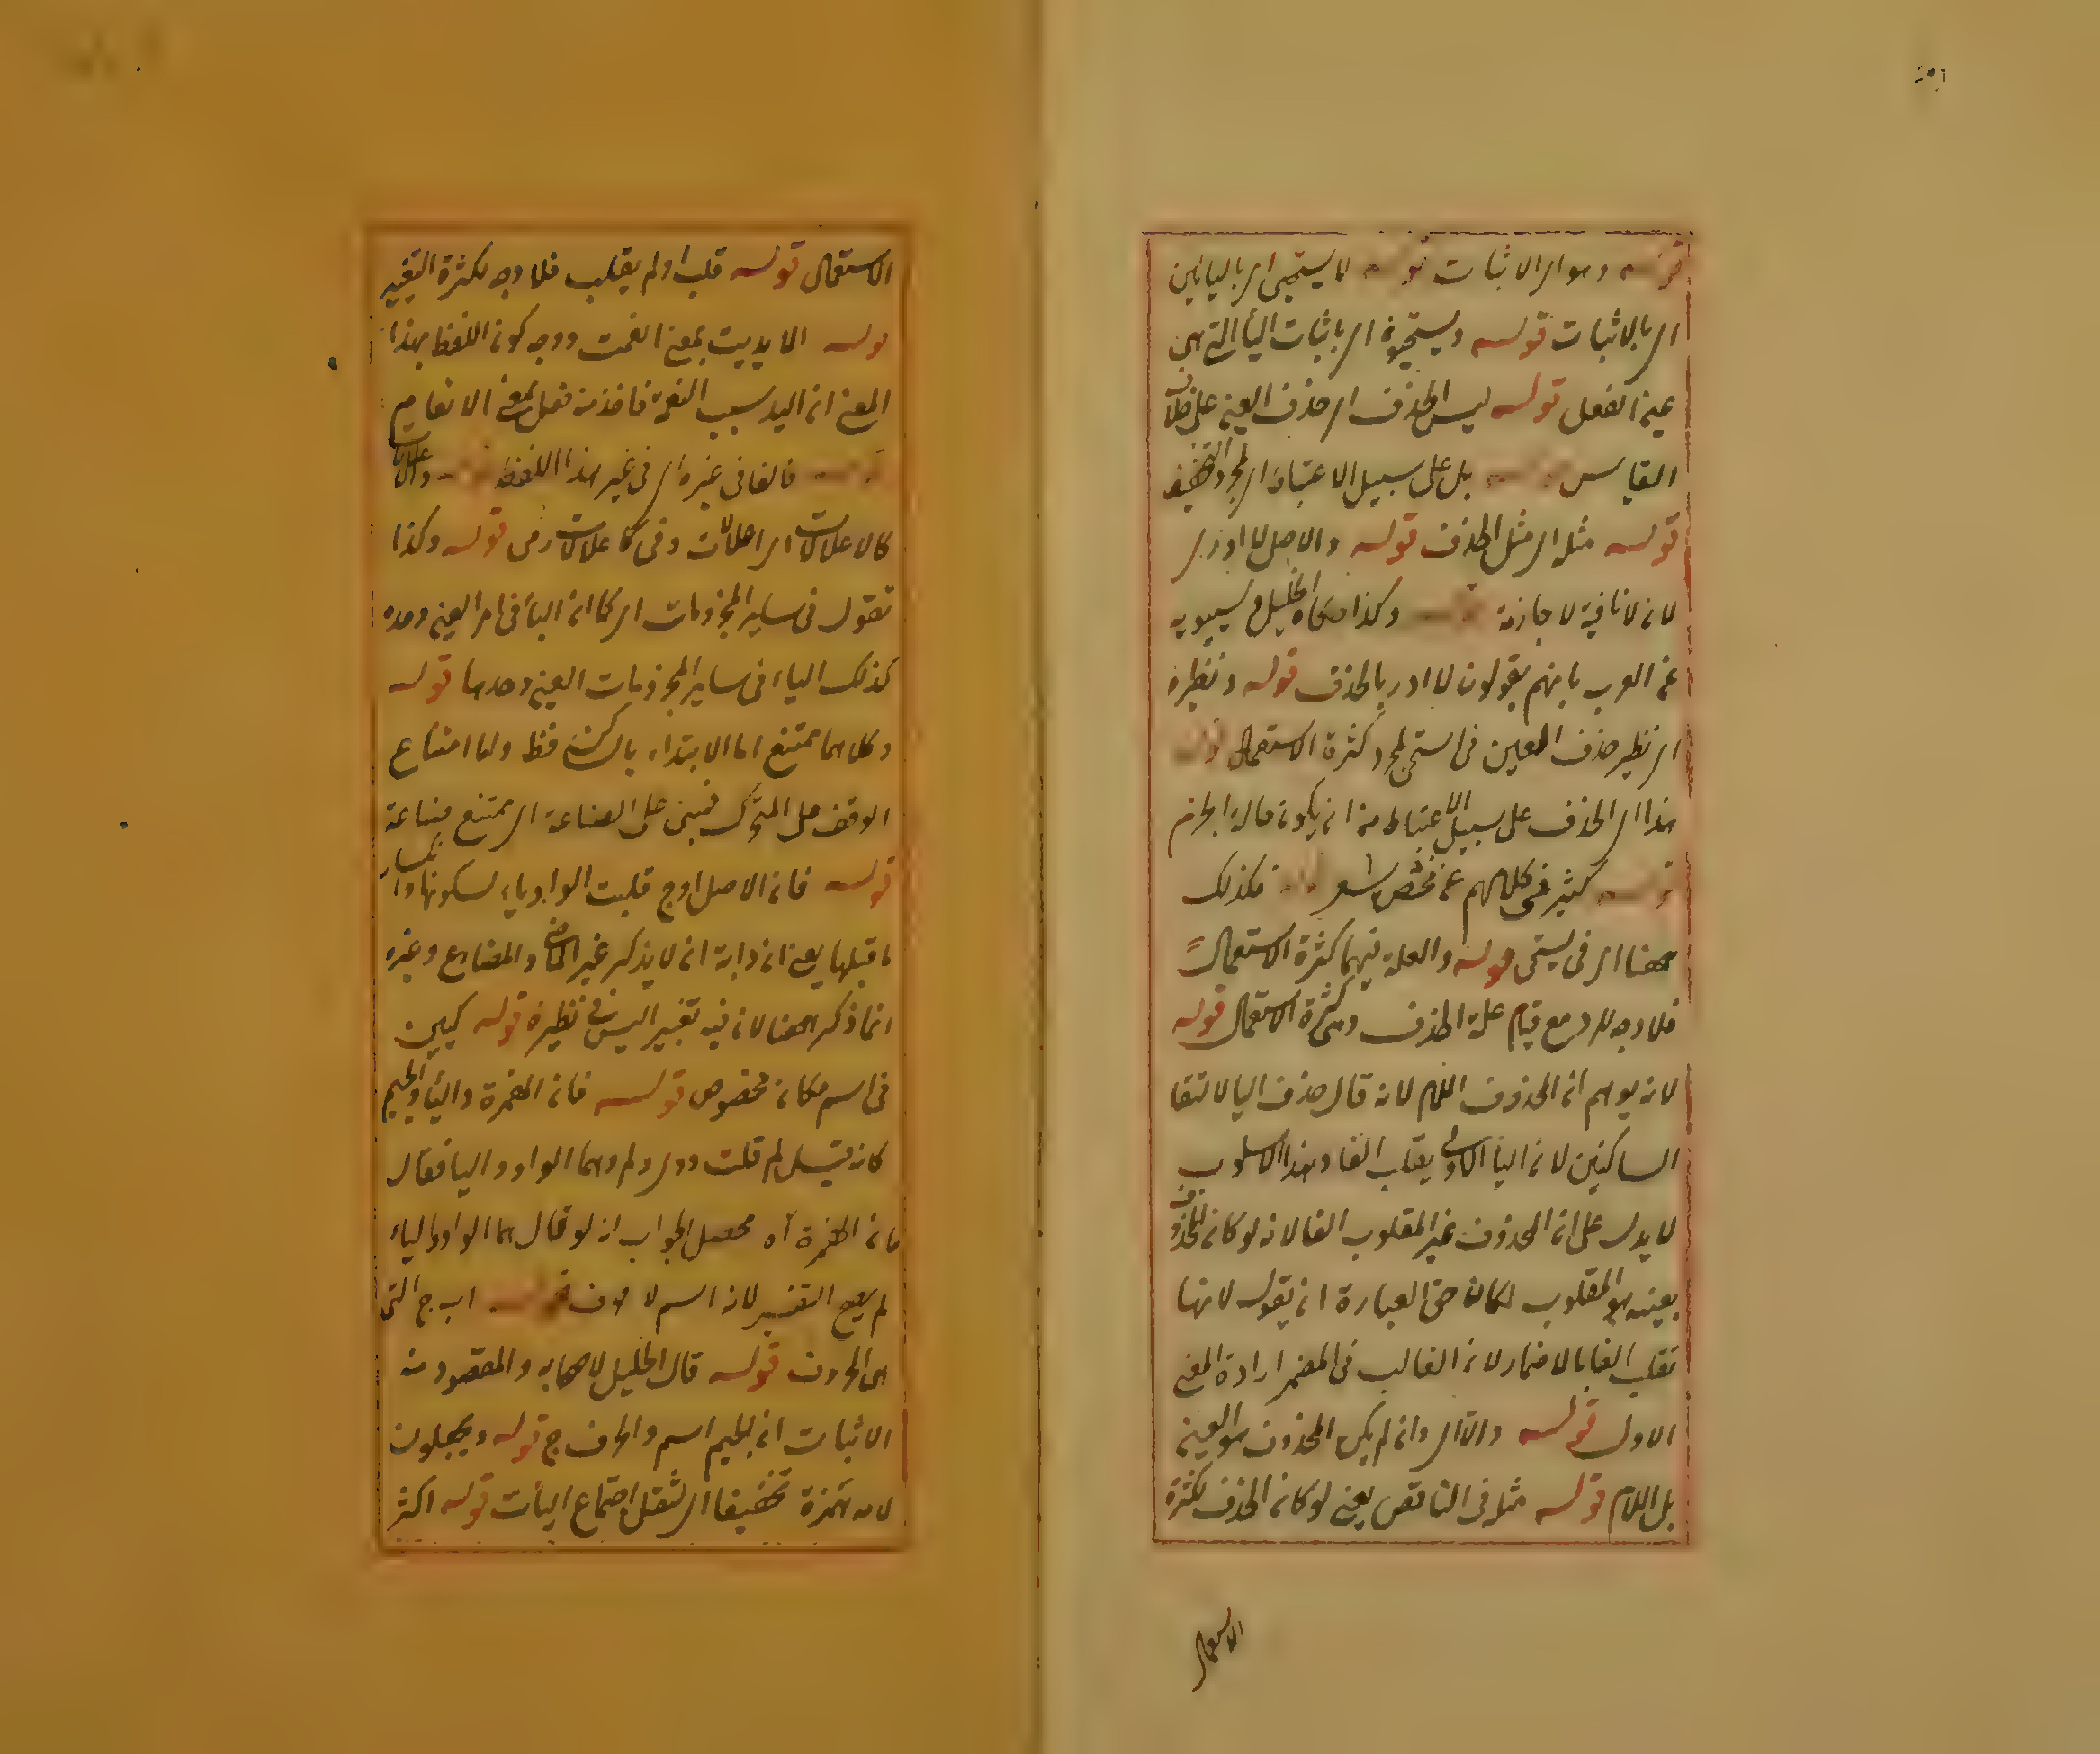 قوله وهو اى الاثبات قوله لا يستحيى اى باليائين
اى بالاثبات قوله ويستحيون اى باثبات اليأ التى هى
عين الفعل قوله ليس الحذف اى حذف العين على خلاف
القياس قوله بل على سبيل الاعتباط اى لمجرد التخفيف
قوله مثله اى مثل الحذف قوله والاصل لا ادرى
لان لا نافية لا جازمة قوله وكذا حكاه الخليل وسيبويه
عن العرب بانهم يقولون لا ادر بالحذف قوله ونظيره
اى نظير حذف العين فى استحى لمجرد كثرة الاستعمال قوله
هذا اى الحذف على سبيل الاعتباط من ان يكون حالة الجزم
قوله كثير فى كلامهم غير مختص بشعر قوله فكذلك
ههنا اى فى يستحى قوله والعلة فيهما كثرة الاستعمال
فلا وجه للرد مع قيام علة الحذف وهى كثرة الاستعمال قوله
لانه يوهم ان المحذوف اللام لانه قال حذف اليا لالتقا
الساكنين لان اليا الاولى يقلب الفا وهذا الاسلوب
لا يدل على ان المحذوف غير المقلوب الفا لانه لو كان المحذوف
بعينه هو المقلوب لكان حق العبارة ان يقول لانها
تقلب الفا بالاضمار لان الغالب فى المضمر ارادة المعنى
الاول قوله والا اى وان لم يكن المحذوف هو العين
بل اللام قوله مثله فى الناقص يعنى لو كان الحذف لكثرة
الاستعمال
الاستعمال قوله قلب او لم يقلب فلا وجه لكثرة التغيير
قوله الا يديت بمعنى انعمت ووجه كون اللفظ بهذا
المعنى ان اليد سبب النعمة فاخذ منه فعل بمعنى الانعام
قوله فالفا فى غيره اى فى غير هذا اللفظ قوله
قوله وكذا
تقول فى ساير المجزومات اى كما ان اليأ فى امر العين وحده
كذلك الياء فى ساير المجزومات العين وحدها قوله
وكلاهما ممتنع اما الابتداء بالساكن فظ واما امتناع
الوقف على المتحرك فمبنى على الصناعة اى ممتنع صناعة
قوله فان الاصل اوج قلبت الواو ياء لسكونها وانكسار
ما قبلها يعنى ان دابه ان لا يذكر غير الماضى والمضارع وغيره
انما ذكر ههنا لان فيه تغيير اليس فى نظيره قوله كيين
فى اسم مكان مخصوص قوله فان الهمزة واليأ والجيم
كانه قيل لم قلت وهما الواو واليا فقال
فان الهمزة آه محصل الجواب انه لو قال هما الواو والياء
لم يصح التفسير لانه اسم لا حرف قوله اب ج التى
هى الحروف قوله قال الخليل لاصحابه والمقصود منه
الاثبات ان الجيم اسم والحرف ج قوله ويجعلون
لامه همزة تخفيفا اى لثقل اجتماع اليأت قوله اكثر